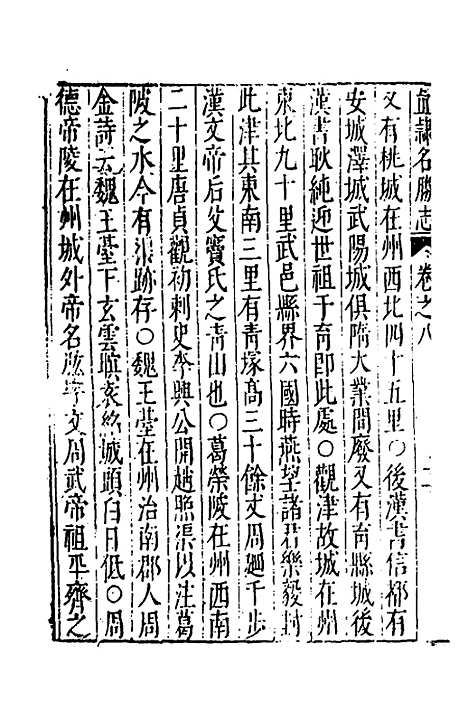 直隸名勝志 卷之八 二
又有桃城在州西北四十五里○後漢書信都有
安城澤城武陽城俱隋大業間廢又有育縣城後
漢書耿純迎世祖于育即此處○觀津故城在州
東北九十里武邑縣界六國時燕望諸君樂毅封
此津其東南三里有青塚高三十餘丈周迴千步
漢文帝后父竇氏之青山也○葛榮陂在州西南
二十里唐貞觀初刺史李興公開趙照渠以注葛
陂之水今有渠跡存○魏王臺在州治南郡人周
金詩云魏王臺下玄雲暝袁紹城頭白日低○周
德帝陵在州城外帝名肱字文周武帝祖平齊之